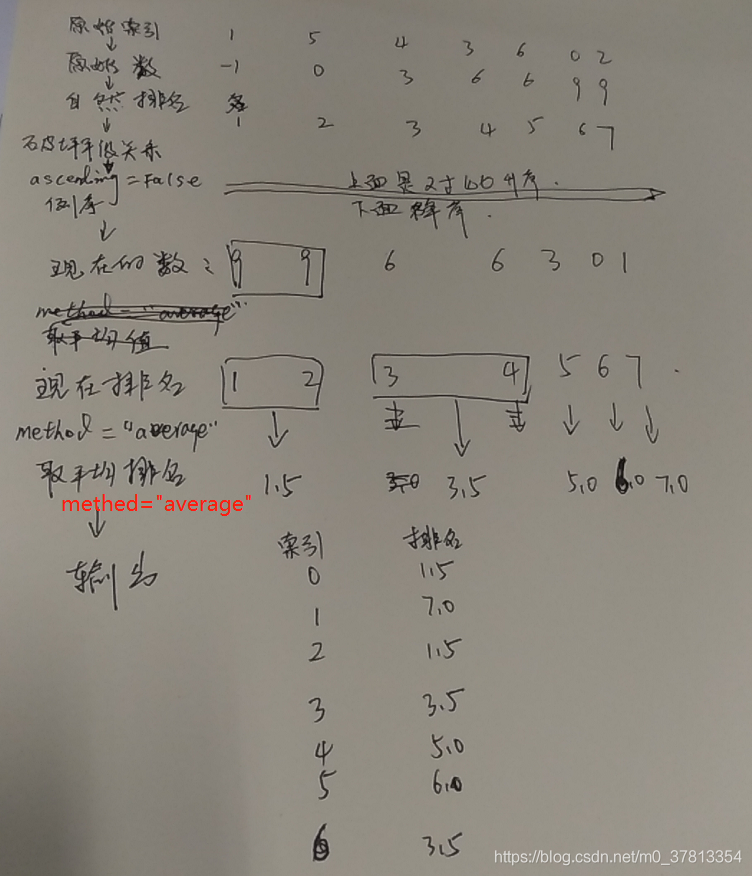 原始索引 1 5 4 3 6 0 2
原始数 -1 0 3 6 6 9 9
自然排名 1 2 3 4 5 6 7
破坏平级关系
ascending=False
倒序
上面是对的升序.
下面降序.
现在的数: 9 9 6 6 3 0 1
method="average"
取平均值
现在排名 1 2 3 4 5 6 7 .
method="average"
取平均排名 1.5 3.5 5.0 6.0 7.0
methed="average"
输出
索引 排名
0 1.5
1 7.0
2 1.5
3 3.5
4 5.0
5 6.0
6 3.5
https://blog.csdn.net/m0_37813354